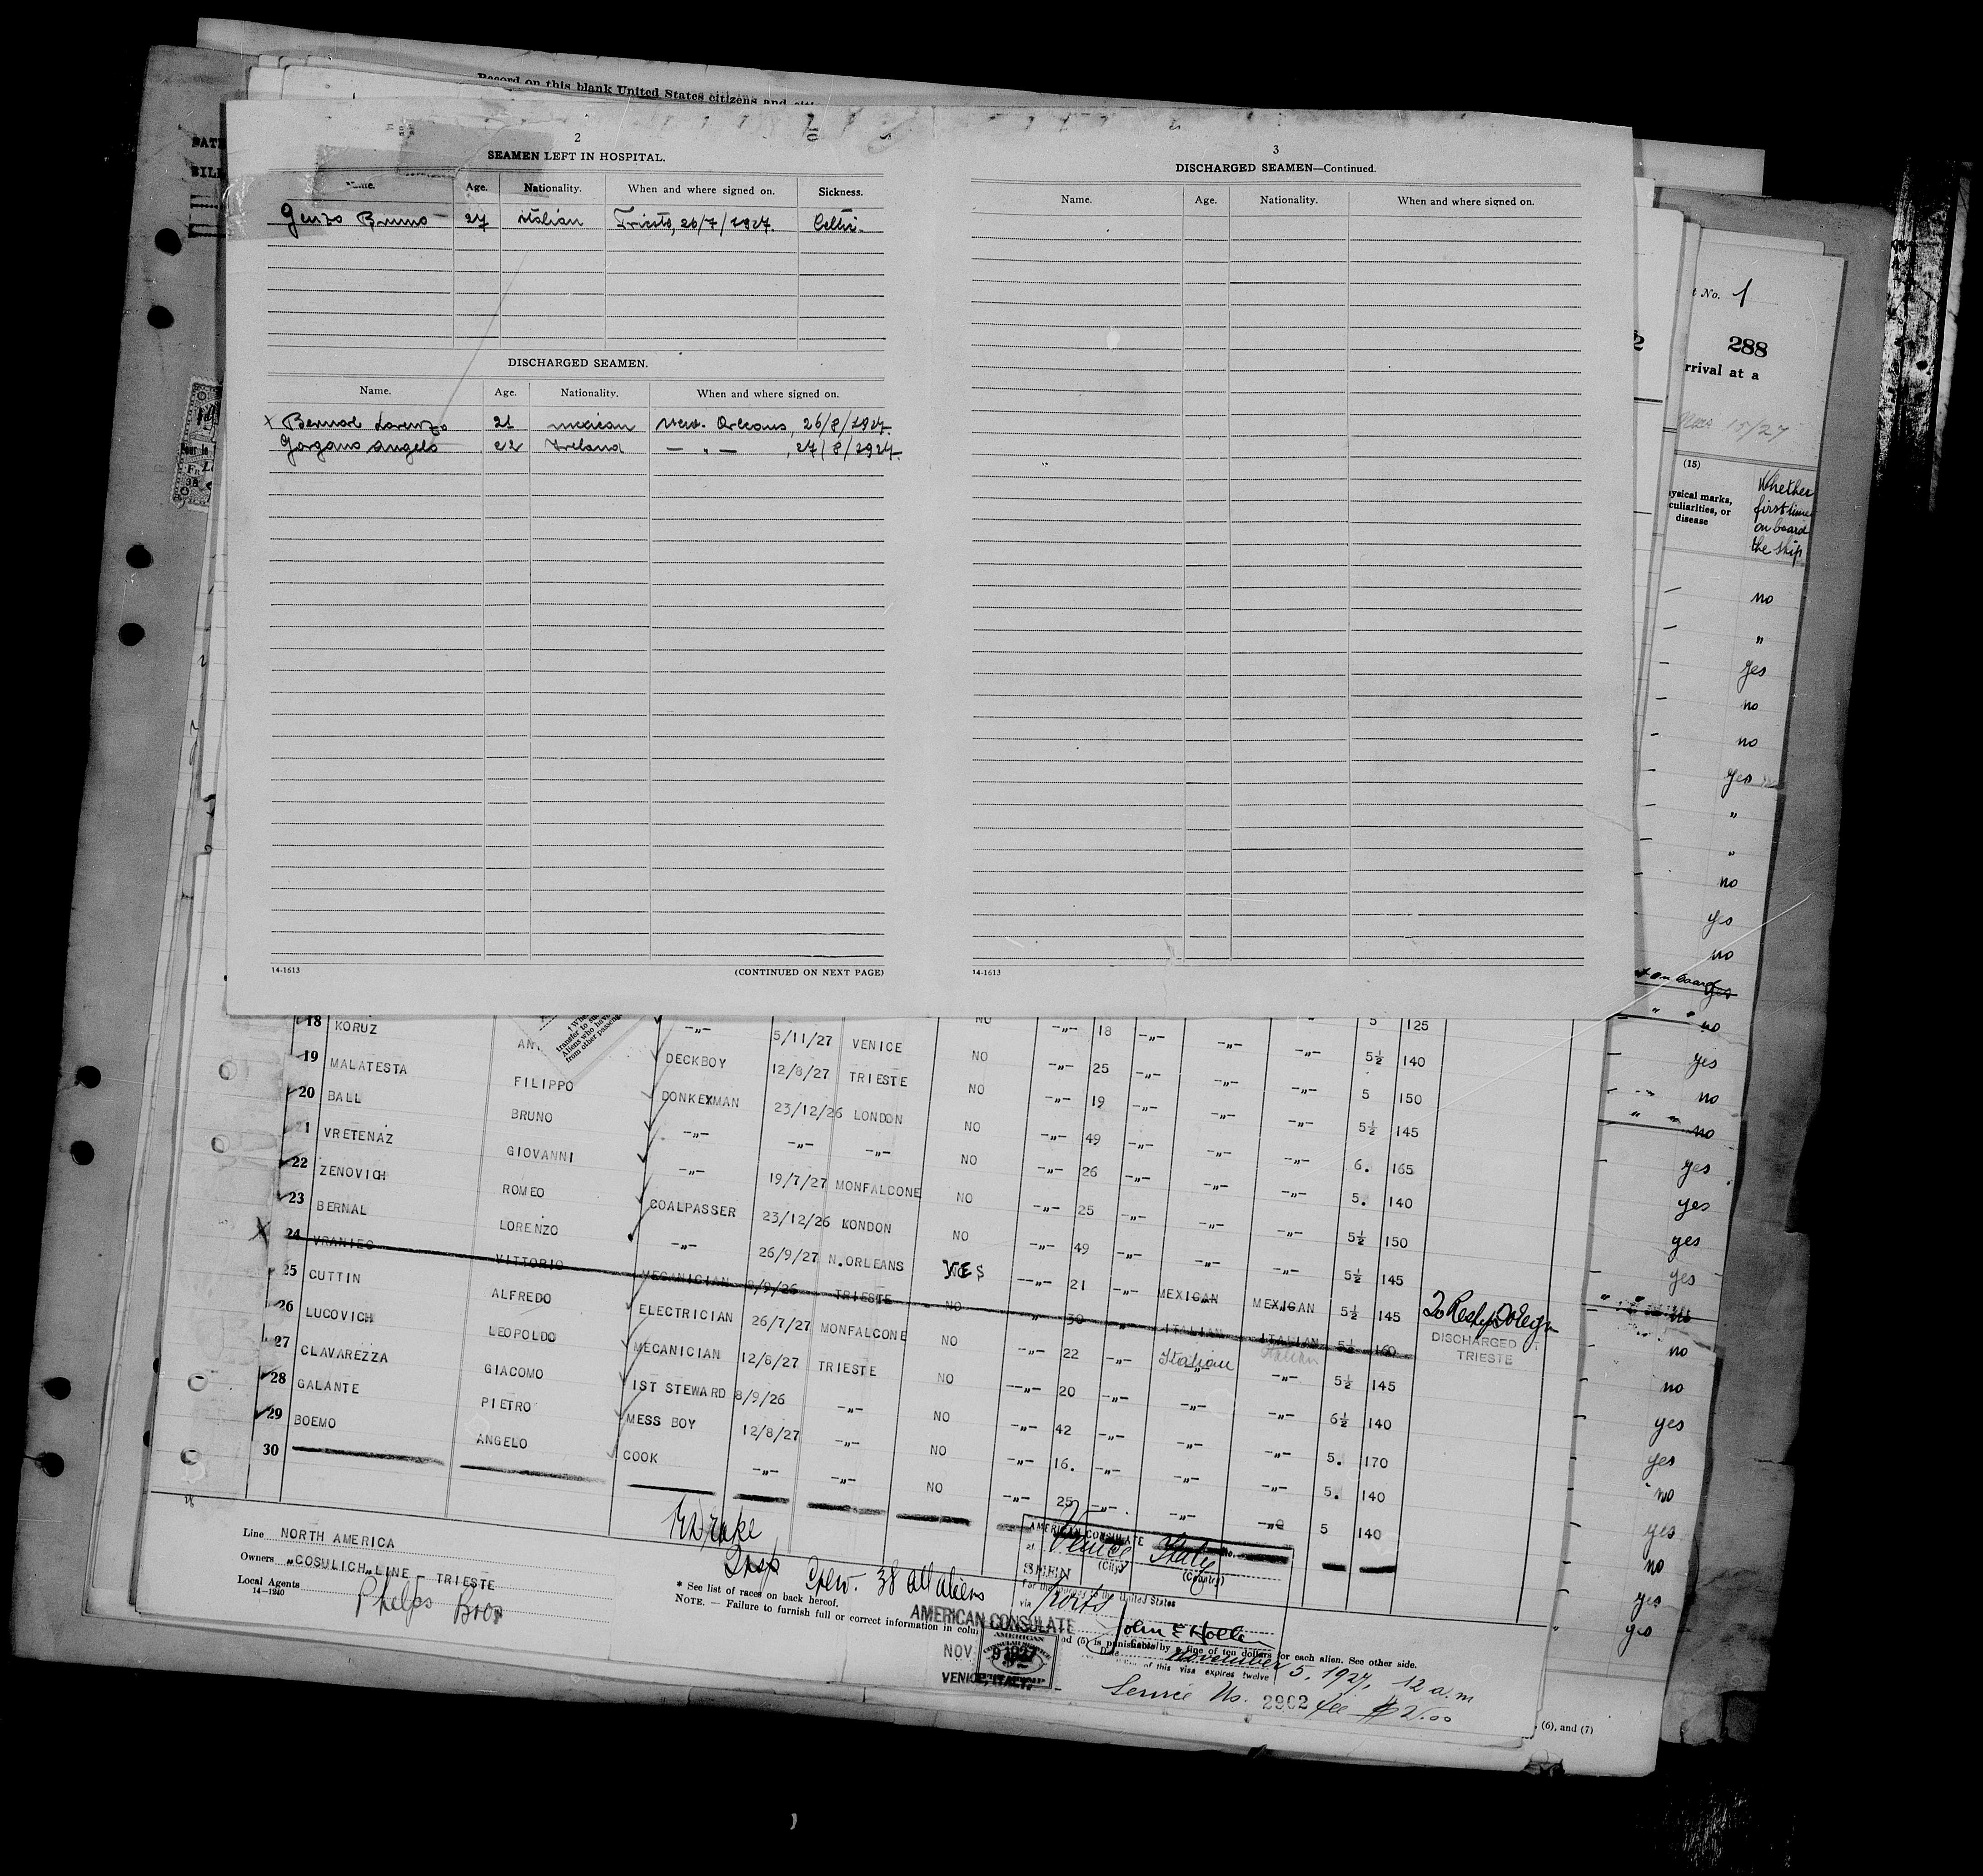 Record on this blank United States citizens and
2
SEAMEN LEFT IN HOSPITAL.
Name. Age. Nationality. When and where signed on. Sickness.
Bruno 27 italian Trieste, 26/7/1927.
DISCHARGED SEAMEN.
Name. Age. Nationality. When and where signed on.
x Bernal Lorenzo 21 mexican New. Orleans, 26/8/1927.
Gorgano Angelo 22 Ireland — " — , 27/8/1927.
14-1613 (CONTINUED ON NEXT PAGE)
3
DISCHARGED SEAMEN—Continued.
Name. Age. Nationality. When and where signed on.
14-1613
No. 1
288
rrival at a
15/27
(15)
ysical marks,
culiarities, or
disease
Whether
first time
on board
the ship
no
"
yes
no
no
yes
"
"
no
yes
no
on board yes
" " no
yes
no
no
yes
yes
yes
yes
no
no
no
yes
yes
no
yes
no
yes
yes
18 KORUZ —"— 5/11/27 VENICE NO —"— 18 —"— —"— —"— 5 125
19 MALATESTA DECKBOY 12/8/27 TRIESTE NO —"— 25 —"— —"— —"— 5½ 140
20 BALL FILIPPO DONKEYMAN 23/12/26 LONDON NO —"— 19 —"— —"— —"— 5 150
1 VRETENAZ BRUNO —"— —"— —"— NO —"— 49 —"— —"— —"— 5½ 145
22 ZENOVICH GIOVANNI —"— 19/7/27 MONFALCONE NO —"— 26 —"— —"— —"— 6. 165
23 BERNAL ROMEO COALPASSER 23/12/26 LONDON NO —"— 25 —"— —"— —"— 5. 140
X 24 VRANIEC LORENZO —"— 26/9/27 N.ORLEANS YES —"— 49 —"— —"— —"— 5½ 150
25 CUTTIN VITTORIO MECANICIAN 8/9/26 TRIESTE NO —"— 21 —"— MEXICAN MEXICAN 5½ 145
26 LUCOVICH ALFREDO ELECTRICIAN 26/7/27 MONFALCONE NO " 30 " ITALIAN ITALIAN 5½ 145
DISCHARGED
TRIESTE
27 CLAVAREZZA LEOPOLDO MECANICIAN 12/8/27 TRIESTE NO —"— 22 —"— Italian Italian 5½ 160
28 GALANTE GIACOMO 1ST STEWARD 8/9/26 —"— NO —"— 20 —"— —"— —"— 5½ 145
29 BOEMO PIETRO MESS BOY 12/8/27 —"— NO —"— 42 —"— —"— —"— 6½ 140
30 ANGELO COOK —"— —"— NO —"— 16. —"— —"— —"— 5. 170
—"— 25 —"— —"— —"— 5. 140
5 140
Line NORTH AMERICA
Owners "COSULICH" LINE - TRIESTE
Local Agents Phelps Bros
14—1240
Drake
Insp
Crew. 38 all aliens
* See list of races on back hereof.
NOTE. — Failure to furnish full or correct information in colu nd (5) is punishable by a fine of ten dollars for each alien. See other side.
AMERICAN CONSULATE
at Venice Italy
(City) (Country)
SEEN
For the journey to the United States
via ports
John E Holler
Date November 5, 1927, 12 a.m
of this visa expires twelve
AMERICAN CONSULATE
NOV 9 1927
VENICE, ITALY.
Service No. 2902 fee $2.00
(6), and (7)